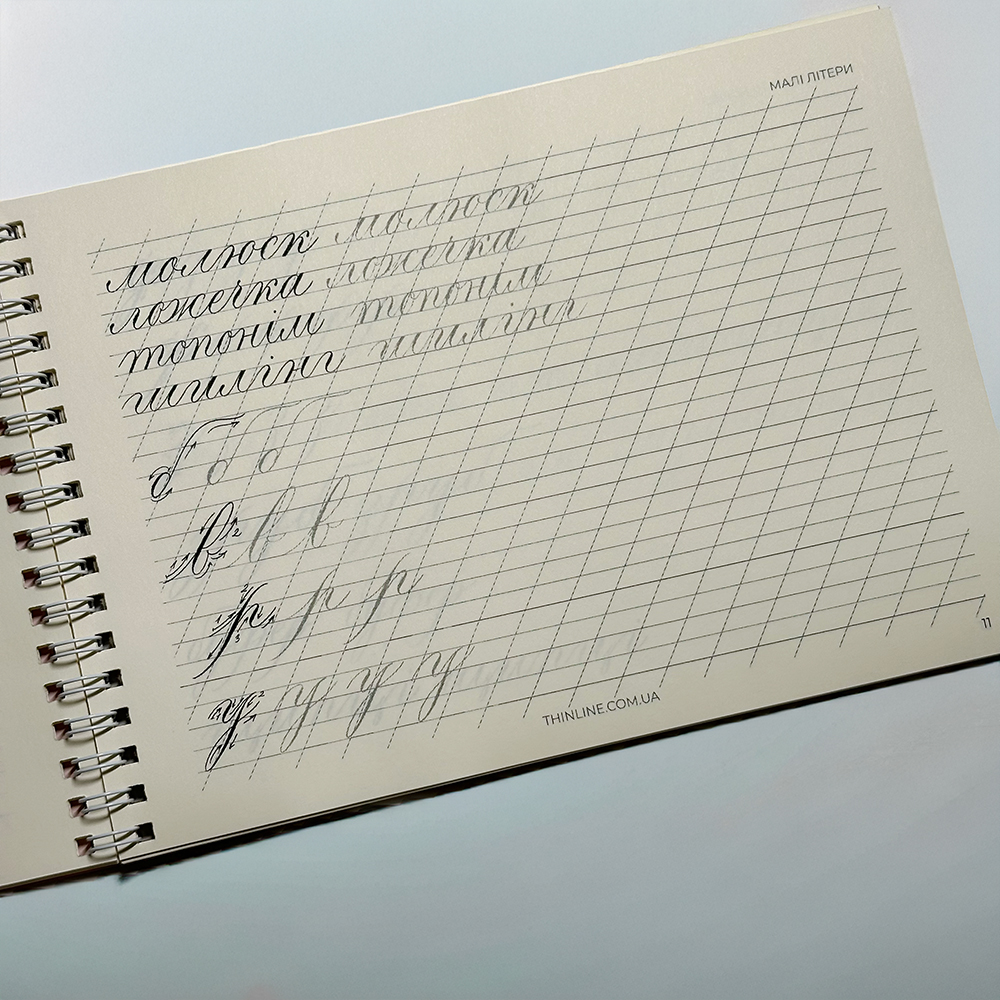 МАЛІ ЛІТЕРИ
молюск молюск
ложечка ложечка
топонім топонім
шилінг шилінг
б б б
в в в
р р р
у у у у
THINLINE.COM.UA
11